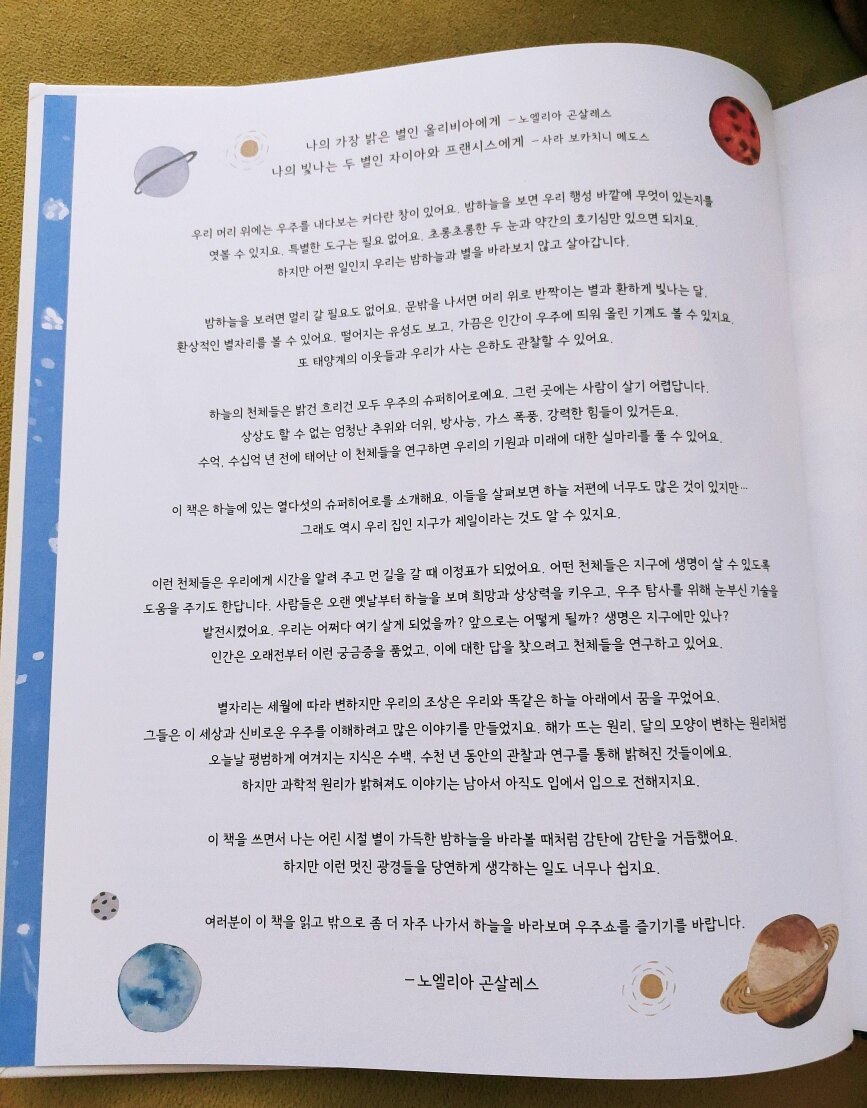 나의 가장 밝은 별인 올리비아에게 – 노엘리아 곤살레스
나의 빛나는 두 별인 자이아와 프랜시스에게 – 사라 보카치니 메도스
우리 머리 위에는 우주를 내다보는 커다란 창이 있어요. 밤하늘을 보면 우리 행성 바깥에 무엇이 있는지를
엿볼 수 있지요. 특별한 도구는 필요 없어요. 초롱초롱한 두 눈과 약간의 호기심만 있으면 되지요.
하지만 어쩐 일인지 우리는 밤하늘과 별을 바라보지 않고 살아갑니다.
밤하늘을 보려면 멀리 갈 필요도 없어요. 문밖을 나서면 머리 위로 반짝이는 별과 환하게 빛나는 달,
환상적인 별자리를 볼 수 있어요. 떨어지는 유성도 보고, 가끔은 인간이 우주에 띄워 올린 기계도 볼 수 있지요.
또 태양계의 이웃들과 우리가 사는 은하도 관찰할 수 있어요.
하늘의 천체들은 밝건 흐리건 모두 우주의 슈퍼히어로예요. 그런 곳에는 사람이 살기 어렵답니다.
상상도 할 수 없는 엄청난 추위와 더위, 방사능, 가스 폭풍, 강력한 힘들이 있거든요.
수억, 수십억 년 전에 태어난 이 천체들을 연구하면 우리의 기원과 미래에 대한 실마리를 풀 수 있어요.
이 책은 하늘에 있는 열다섯의 슈퍼히어로를 소개해요. 이들을 살펴보면 하늘 저편에 너무도 많은 것이 있지만…
그래도 역시 우리 집인 지구가 제일이라는 것도 알 수 있지요.
이런 천체들은 우리에게 시간을 알려 주고 먼 길을 갈 때 이정표가 되었어요. 어떤 천체들은 지구에 생명이 살 수 있도록
도움을 주기도 한답니다. 사람들은 오랜 옛날부터 하늘을 보며 희망과 상상력을 키우고, 우주 탐사를 위해 눈부신 기술을
발전시켰어요. 우리는 어쩌다 여기 살게 되었을까? 앞으로는 어떻게 될까? 생명은 지구에만 있나?
인간은 오래전부터 이런 궁금증을 품었고, 이에 대한 답을 찾으려고 천체들을 연구하고 있어요.
별자리는 세월에 따라 변하지만 우리의 조상은 우리와 똑같은 하늘 아래에서 꿈을 꾸었어요.
그들은 이 세상과 신비로운 우주를 이해하려고 많은 이야기를 만들었지요. 해가 뜨는 원리, 달의 모양이 변하는 원리처럼
오늘날 평범하게 여겨지는 지식은 수백, 수천 년 동안의 관찰과 연구를 통해 밝혀진 것들이에요.
하지만 과학적 원리가 밝혀져도 이야기는 남아서 아직도 입에서 입으로 전해지지요.
이 책을 쓰면서 나는 어린 시절 별이 가득한 밤하늘을 바라볼 때처럼 감탄에 감탄을 거듭했어요.
하지만 이런 멋진 광경들을 당연하게 생각하는 일도 너무나 쉽지요.
여러분이 이 책을 읽고 밖으로 좀 더 자주 나가서 하늘을 바라보며 우주쇼를 즐기기를 바랍니다.
– 노엘리아 곤살레스